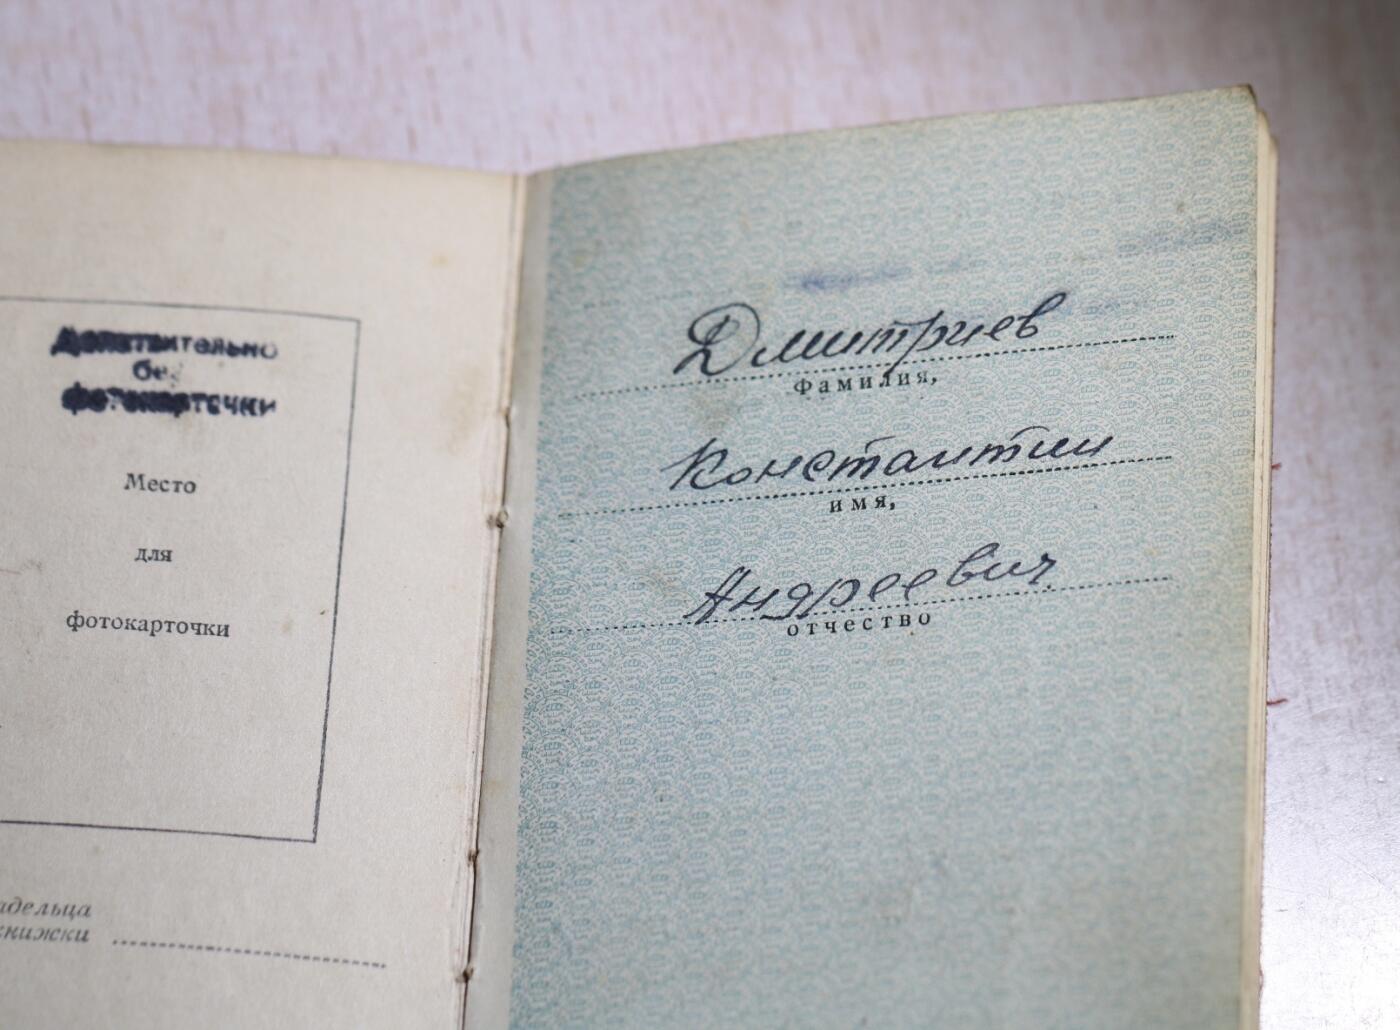 Действительно
без
фотокарточки
Место
для
фотокарточки
адельца
книжки
Дмитриев
фамилия,
Константин
имя,
Андреевич
отчество